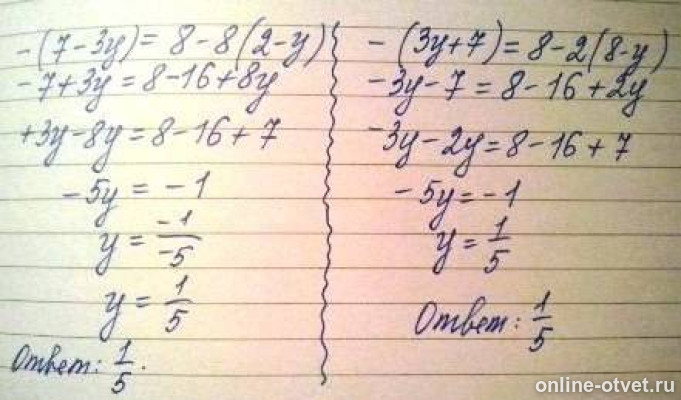 -(7-3y)=8-8(2-y)
-7+3y=8-16+8y
+3y-8y=8-16+7
-5y=-1
y=-1/-5
y=1/5
Ответ: 1/5.
-(3y+7)=8-2(8-y)
-3y-7=8-16+2y
-3y-2y=8-16+7
-5y=-1
y=1/5
Ответ: 1/5
online-otvet.ru